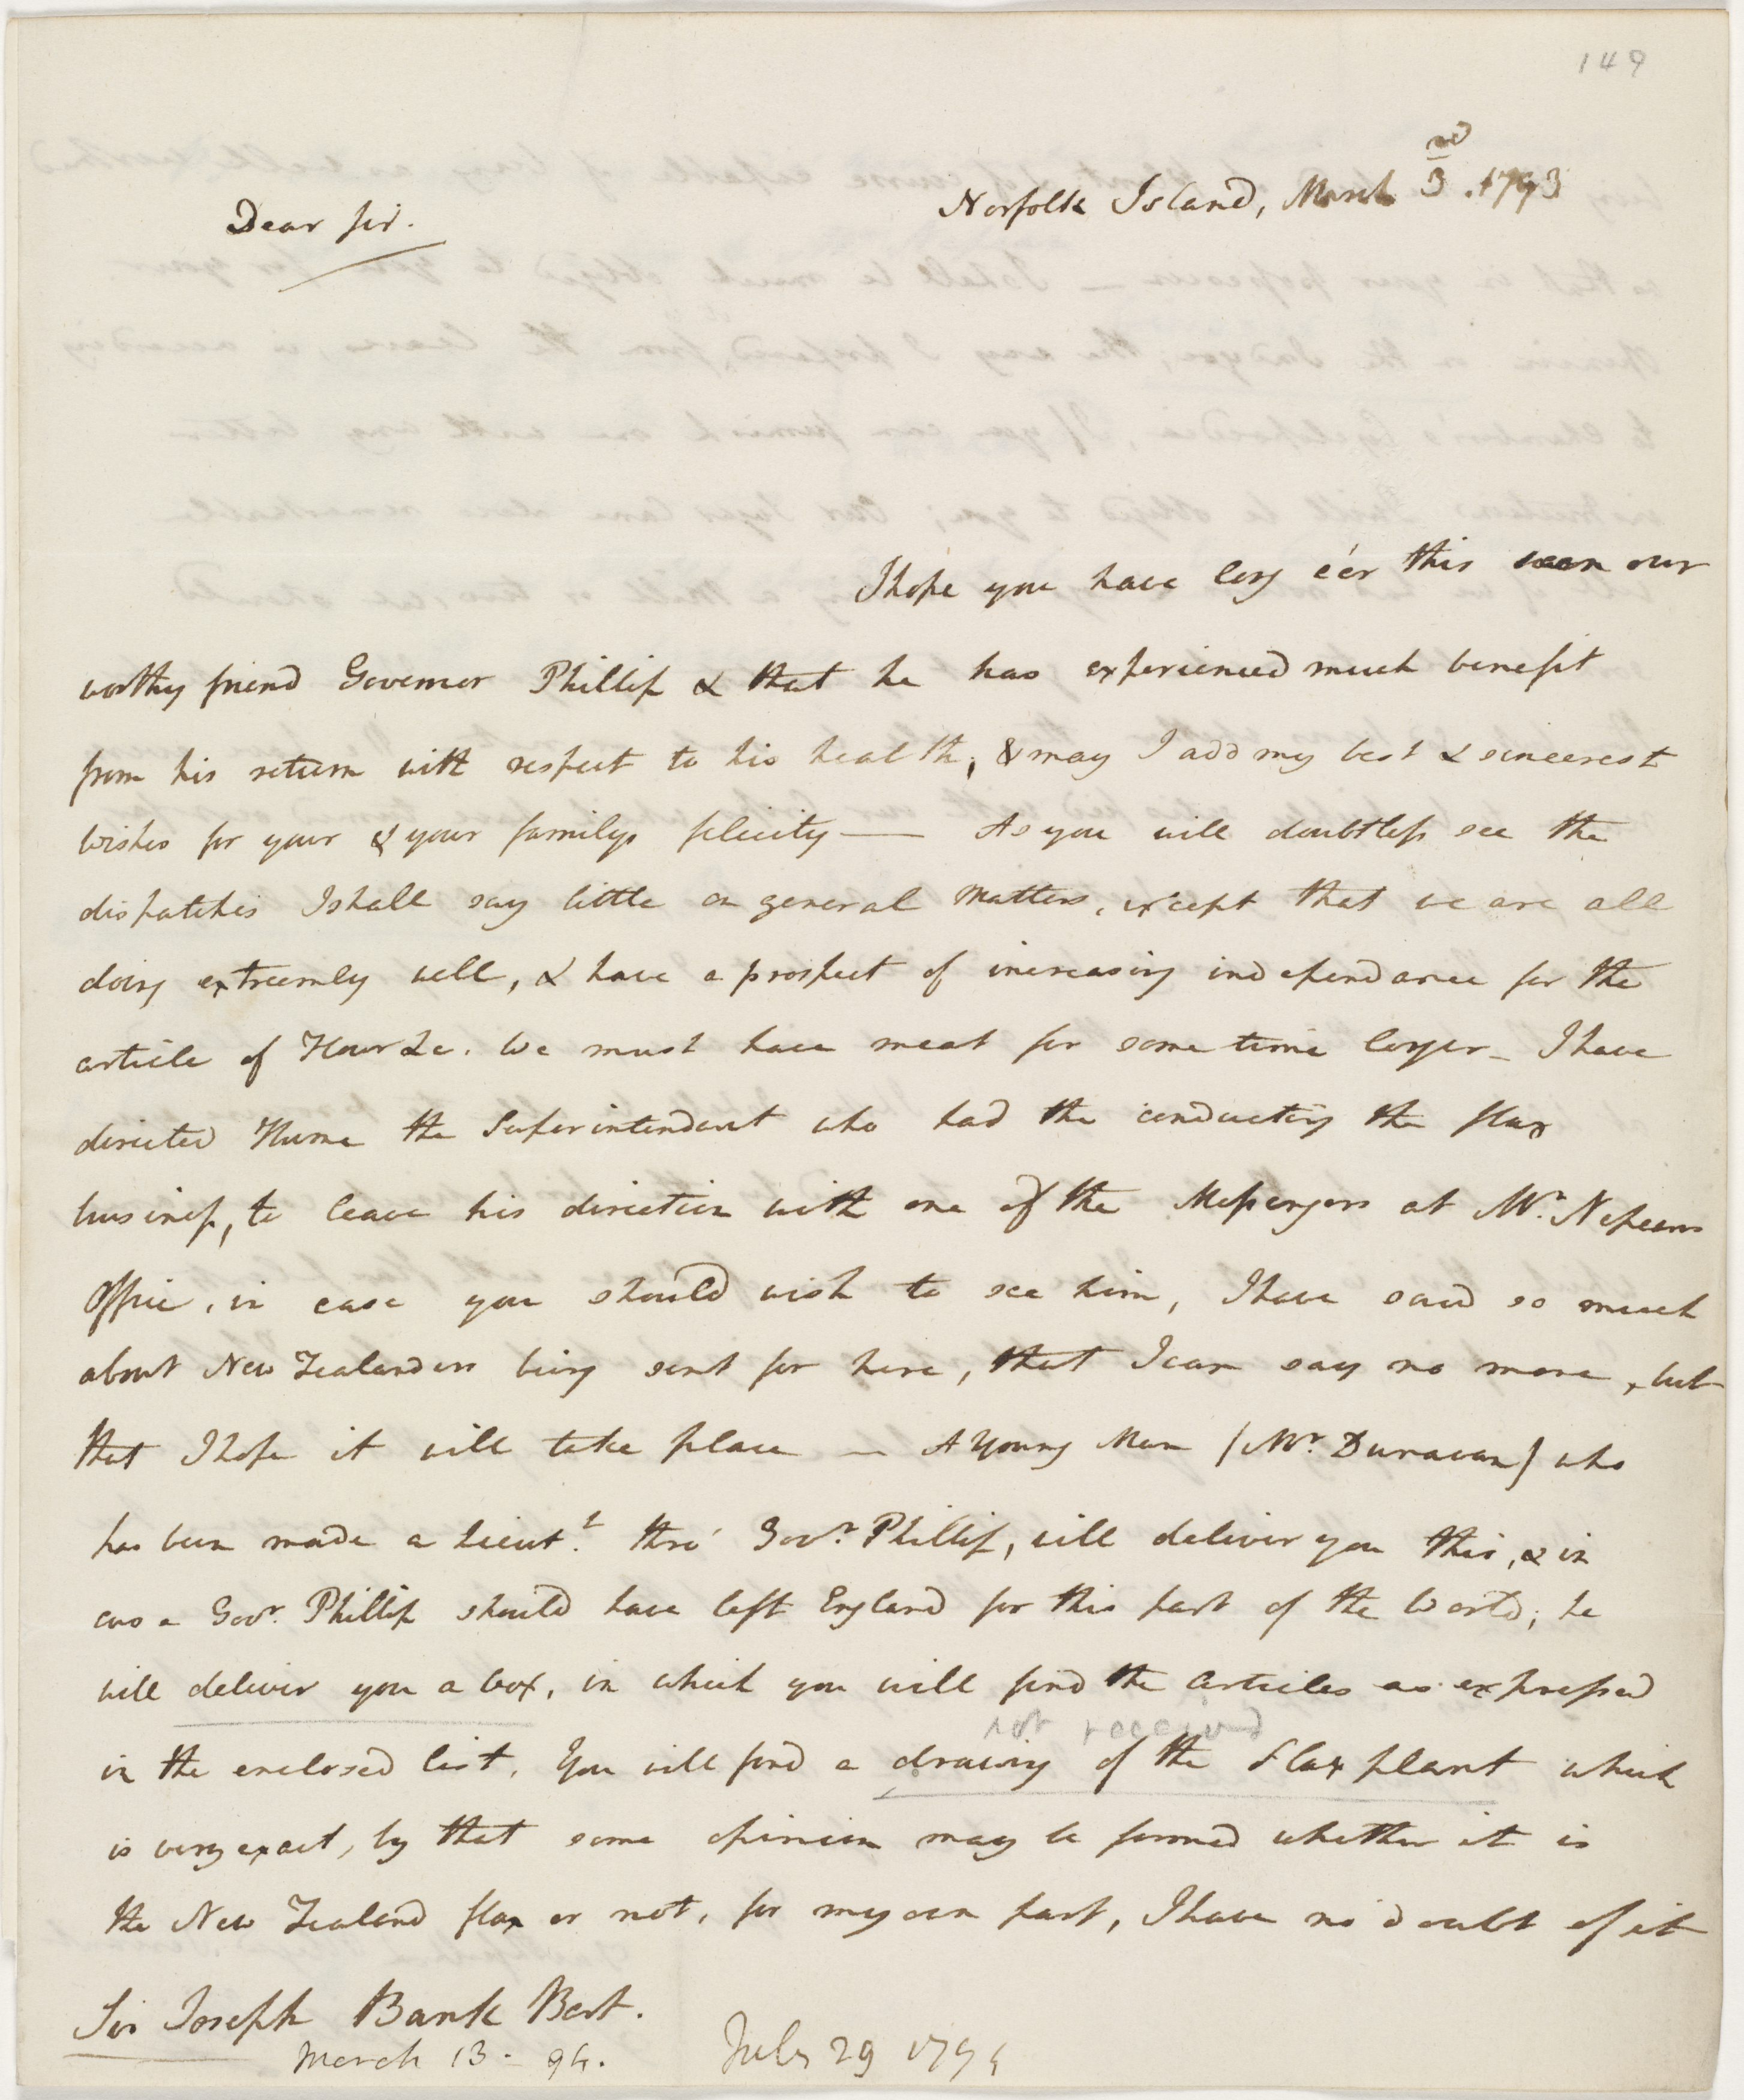 149
Norfolk Island, March 3rd. 1793
Dear Sir.
I hope you have long e'er this seen our
worthy friend Governor Phillip & that he has experienced much benefit
from his return with respect to his health, & may I add my best & sincerest
wishes for your & your familys felicity — As you will doubtless see the
dispatches I shall say little on general Matters, except that we are all
doing extreemly well, & have a prospect of increasing independance for the
article of Flour &c. We must have meat for some time longer – I have
directed Hume the Superintendant who had the conducting the flax
business, to leave his direction with one of the Messengers at Mr. Nepeans
Office, in case you should wish to see him, I have said so much
about New Zealanders being sent for here, that I can say no more, but
that I hope it will take place — A Young Man (Mr. Dunavan) who
has been made a Lieut.t thro' Govr. Phillip, will deliver you this, & in
case Govr. Phillip should have left England for this part of the World, he
will deliver you a box, in which you will find the Articles as expressed
not received
in the enclosed list. You will find a drawing of the Flax plant which
is very exact, by that some opinion may be formed whether it is
the New Zealand flax or not, for my own part, I have no doubt of it
Sir Joseph Bank Bart.
March 13 - 94. July 29 1794